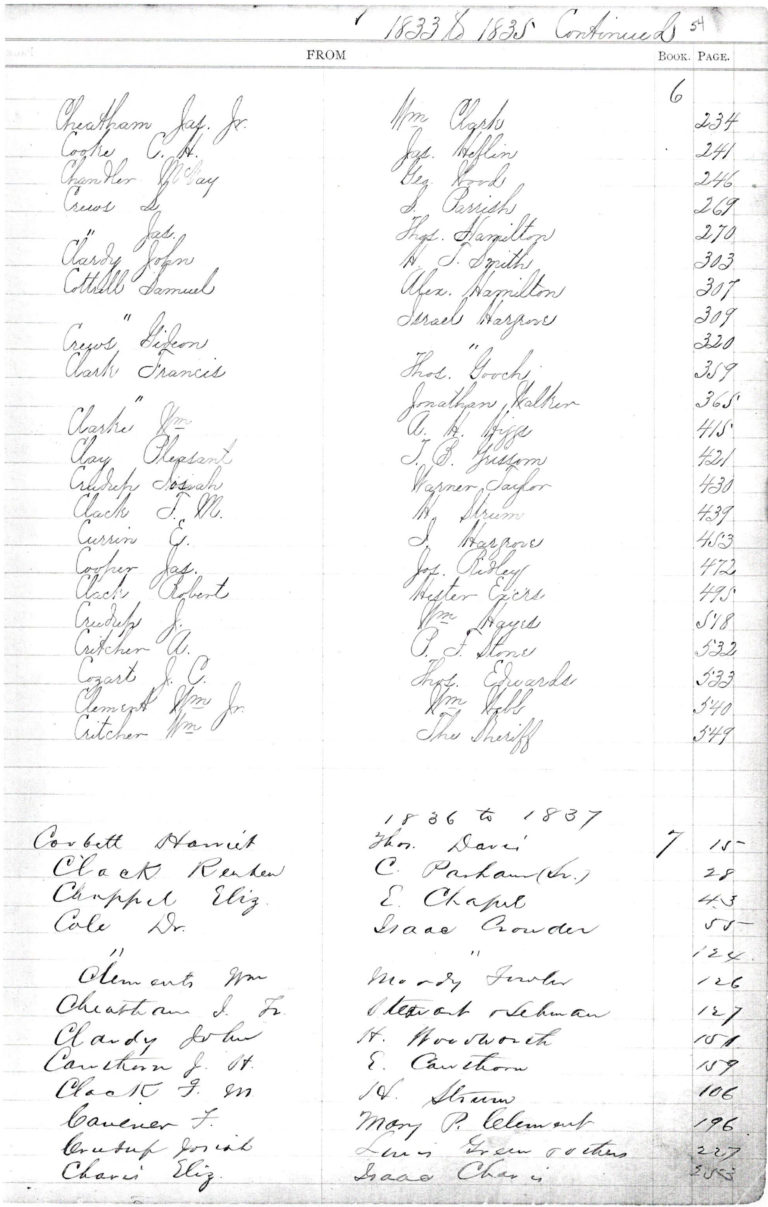 1833 to 1835 Continued 54
FROM BOOK. PAGE.
6
Cheatham Jas. Jr. Wm Clark 234
Cooke C. H. Jas. Heflin 241
Chandler McVay Geo Wood 246
Crews S. J. Parrish 269
" Jas. Thos. Hamilton 270
Clardy John H. T. Smith 303
Cottrell Samuel Alex. Hamilton 307
" Israel Hargrove 309
Crews Gideon " 320
Clark Francis Thos. Gooch 359
" Jonathan Walker 365
Clarke Wm A. H. Higgs 415
Clay Pleasant T. B. Grissom 421
Crudup Josiah Warner Taylor 430
Clack T. M. H. Strum 439
Currin E. J. Hargrove 453
Cooper Jas. Jos. Ridley 472
Clack Robert Hester 495
Crudup J. Wm Hayes 518
Critcher A. P. F. Stone 532
Cozart J. C. Thos. Edwards 533
Clement Wm Jr. Wm Webb 540
Critcher Wm The Sheriff 549
1836 to 1837
Corbett Harriet Thos. Davis 7 15
Clack Reuben C. Parham (Sr.) 28
Chappel Eliz. E. Chapel 43
Cole Dr. Isaac Crowder 55
" " 124
Clements Wm Moody Fowler 126
Cheatham J. Jr. Stewart 127
Clardy John H. Woodworth 151
Cawthorn J. H. E. Cawthorn 159
Clack F. M H. Strum 106
Cavener F. Mary P. Clement 196
Crudup Josiah Lewis Green others 227
Chavis Eliz. Isaac Chavis 253